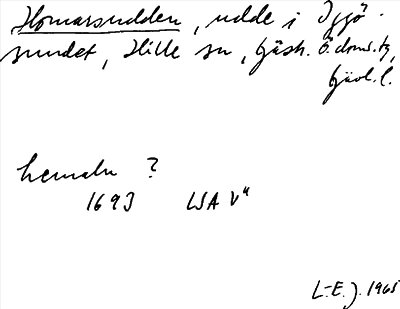 Homarsudden, udde i Iggö-
sundet, Hille sn, Gästr. Ö. doms. tg,
Gävl. l.
hemaln ?
1693 LSA V"
L-E. J. 1965